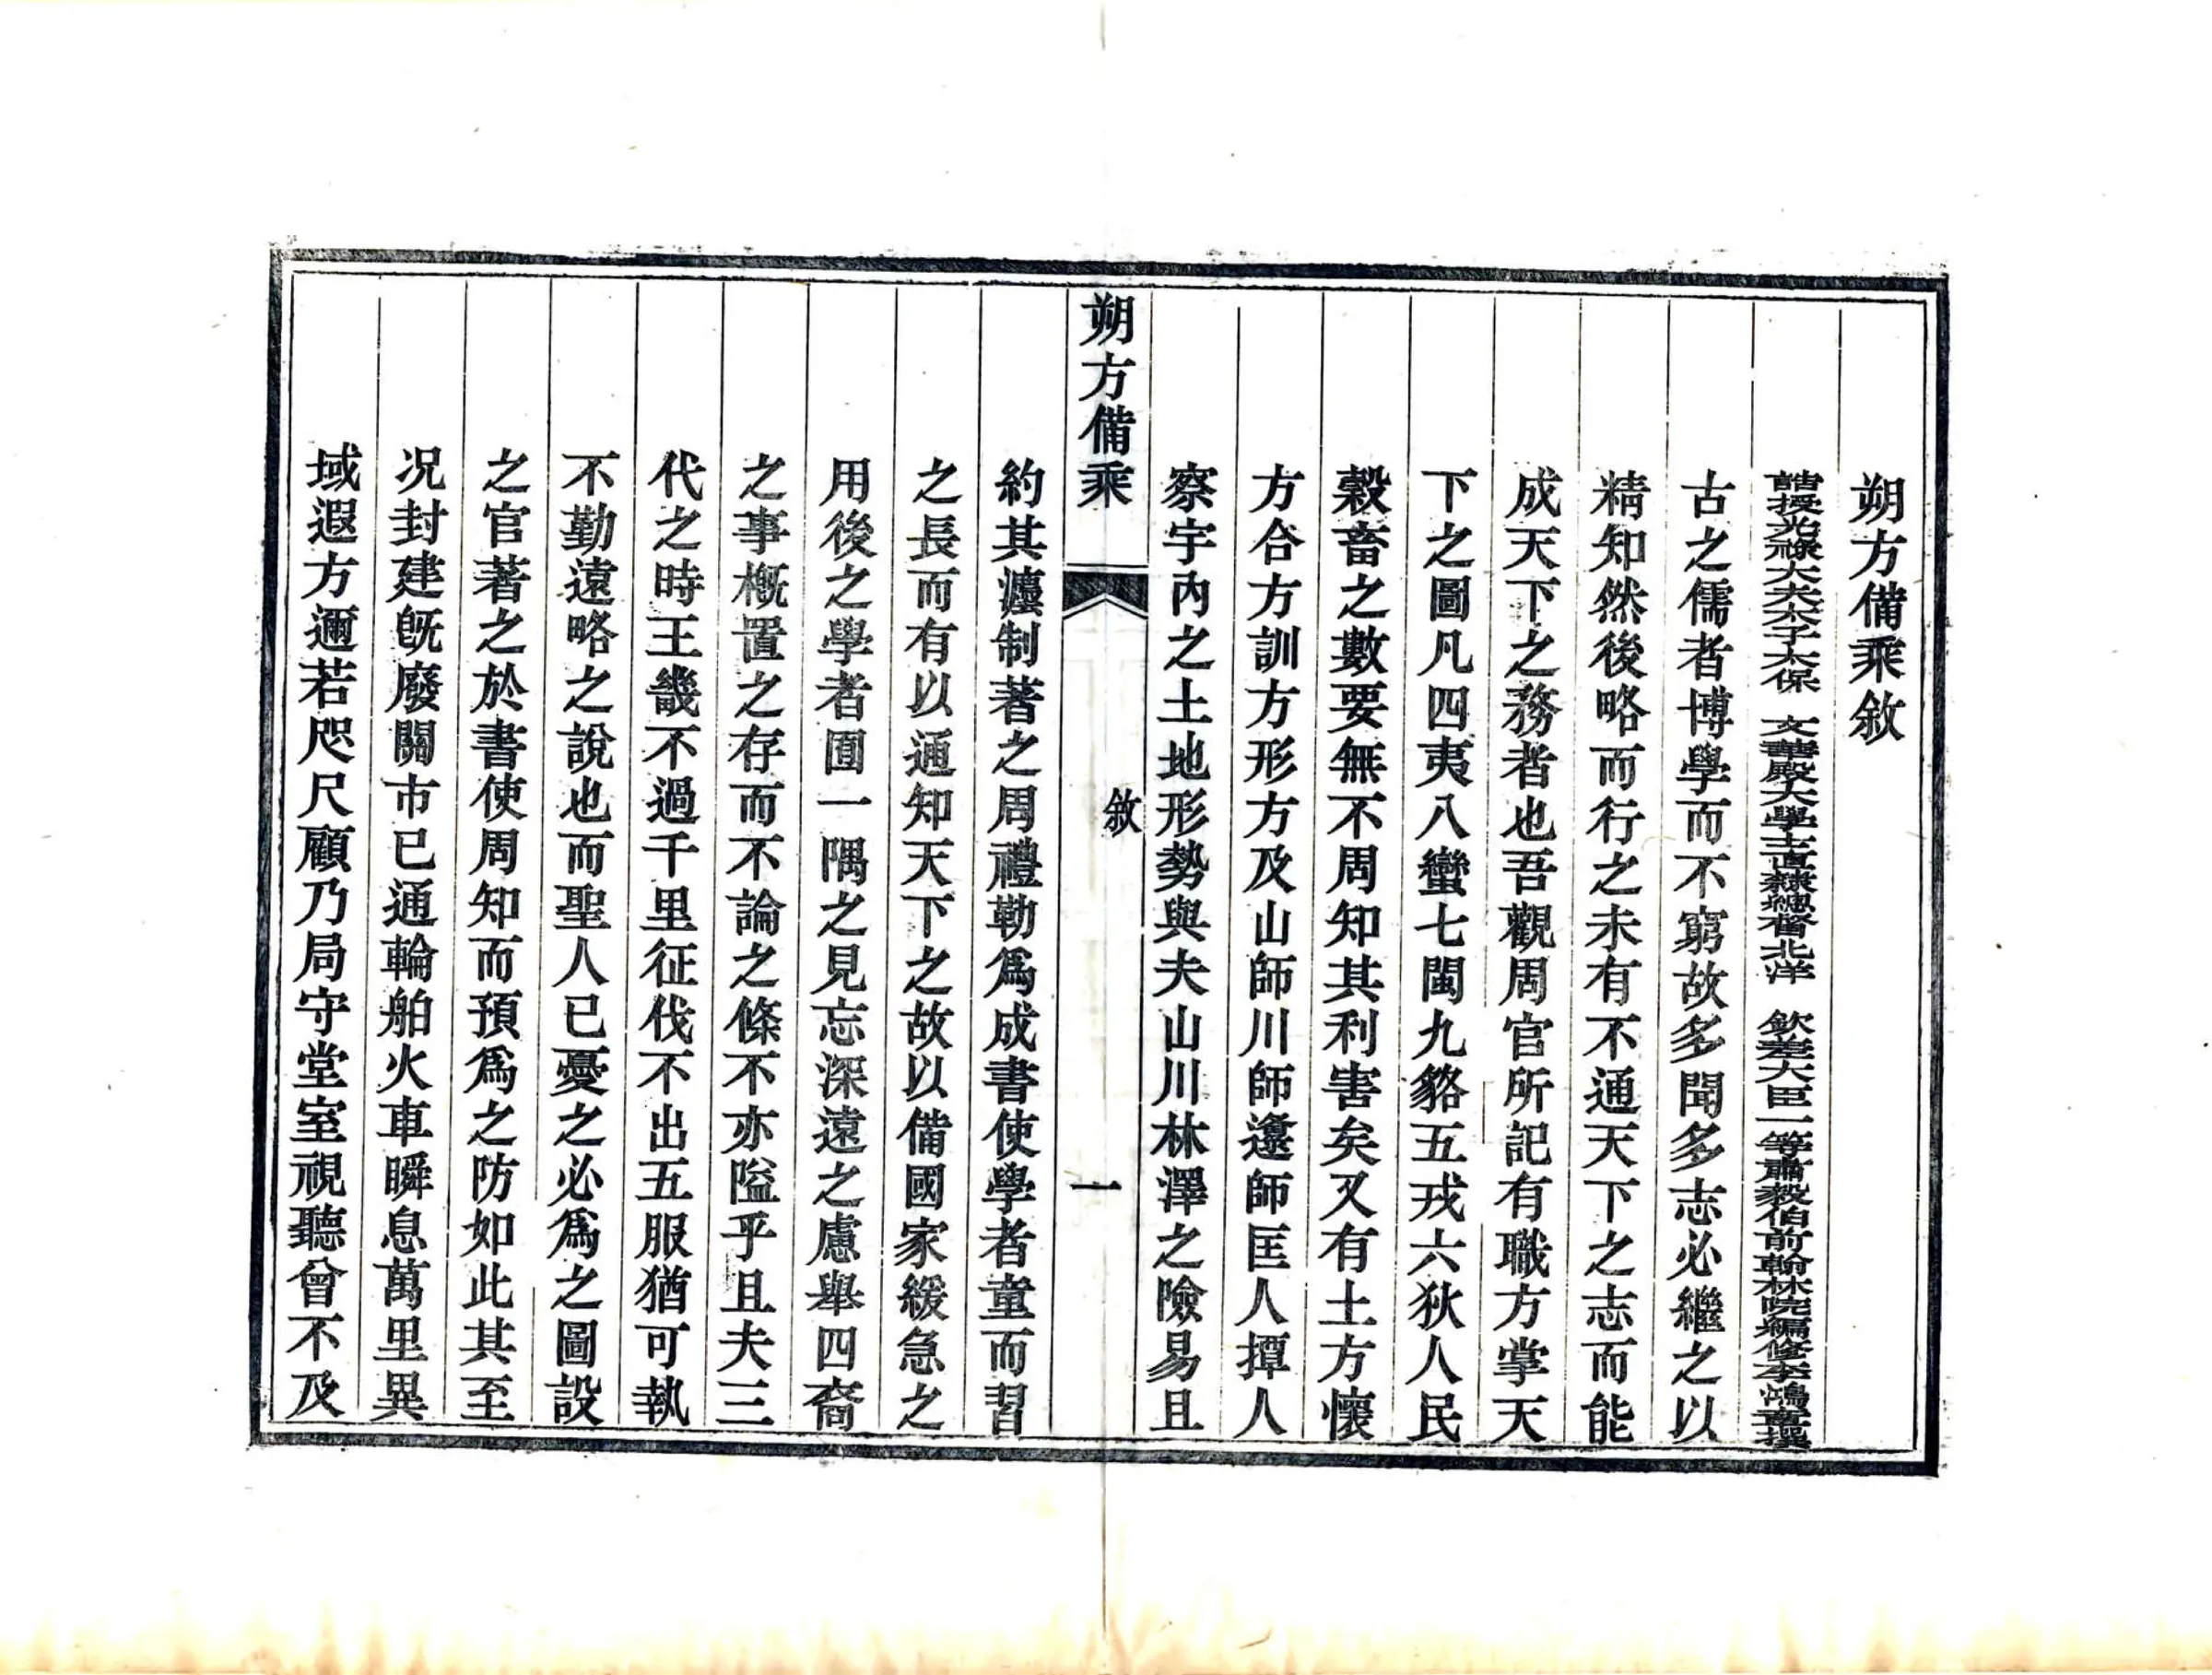 朔方備乘敘
誥授光祿大夫太子太保 文華殿大學士直隸總督北洋 欽差大臣一等肅毅伯前翰林院編修李鴻章撰
古之儒者博學而不窮故多聞多志必繼之以
精知然後略而行之未有不通天下之志而能
成天下之務者也吾觀周官所記有職方掌天
下之圖凡四夷八蠻七閩九貉五戎六狄人民
穀畜之數要無不周知其利害矣又有土方懷
方合方訓方形方及山師川師邍師匡人撢人
察宇內之土地形勢與夫山川林澤之險易且
朔方備乘
敘
一
約其灋制著之周禮勒爲成書使學者童而習
之長而有以通知天下之故以備國家緩急之
用後之學者囿一隅之見忘深遠之慮舉四裔
之事槪置之存而不論之條不亦隘乎且夫三
代之時王畿不過千里征伐不出五服猶可執
不勤遠略之說也而聖人已憂之必爲之圖設
之官著之於書使周知而預爲之防如此其至
况封建旣廢關市已通輪舶火車瞬息萬里異
域遐方邇若咫尺顧乃局守堂室視聽曾不及